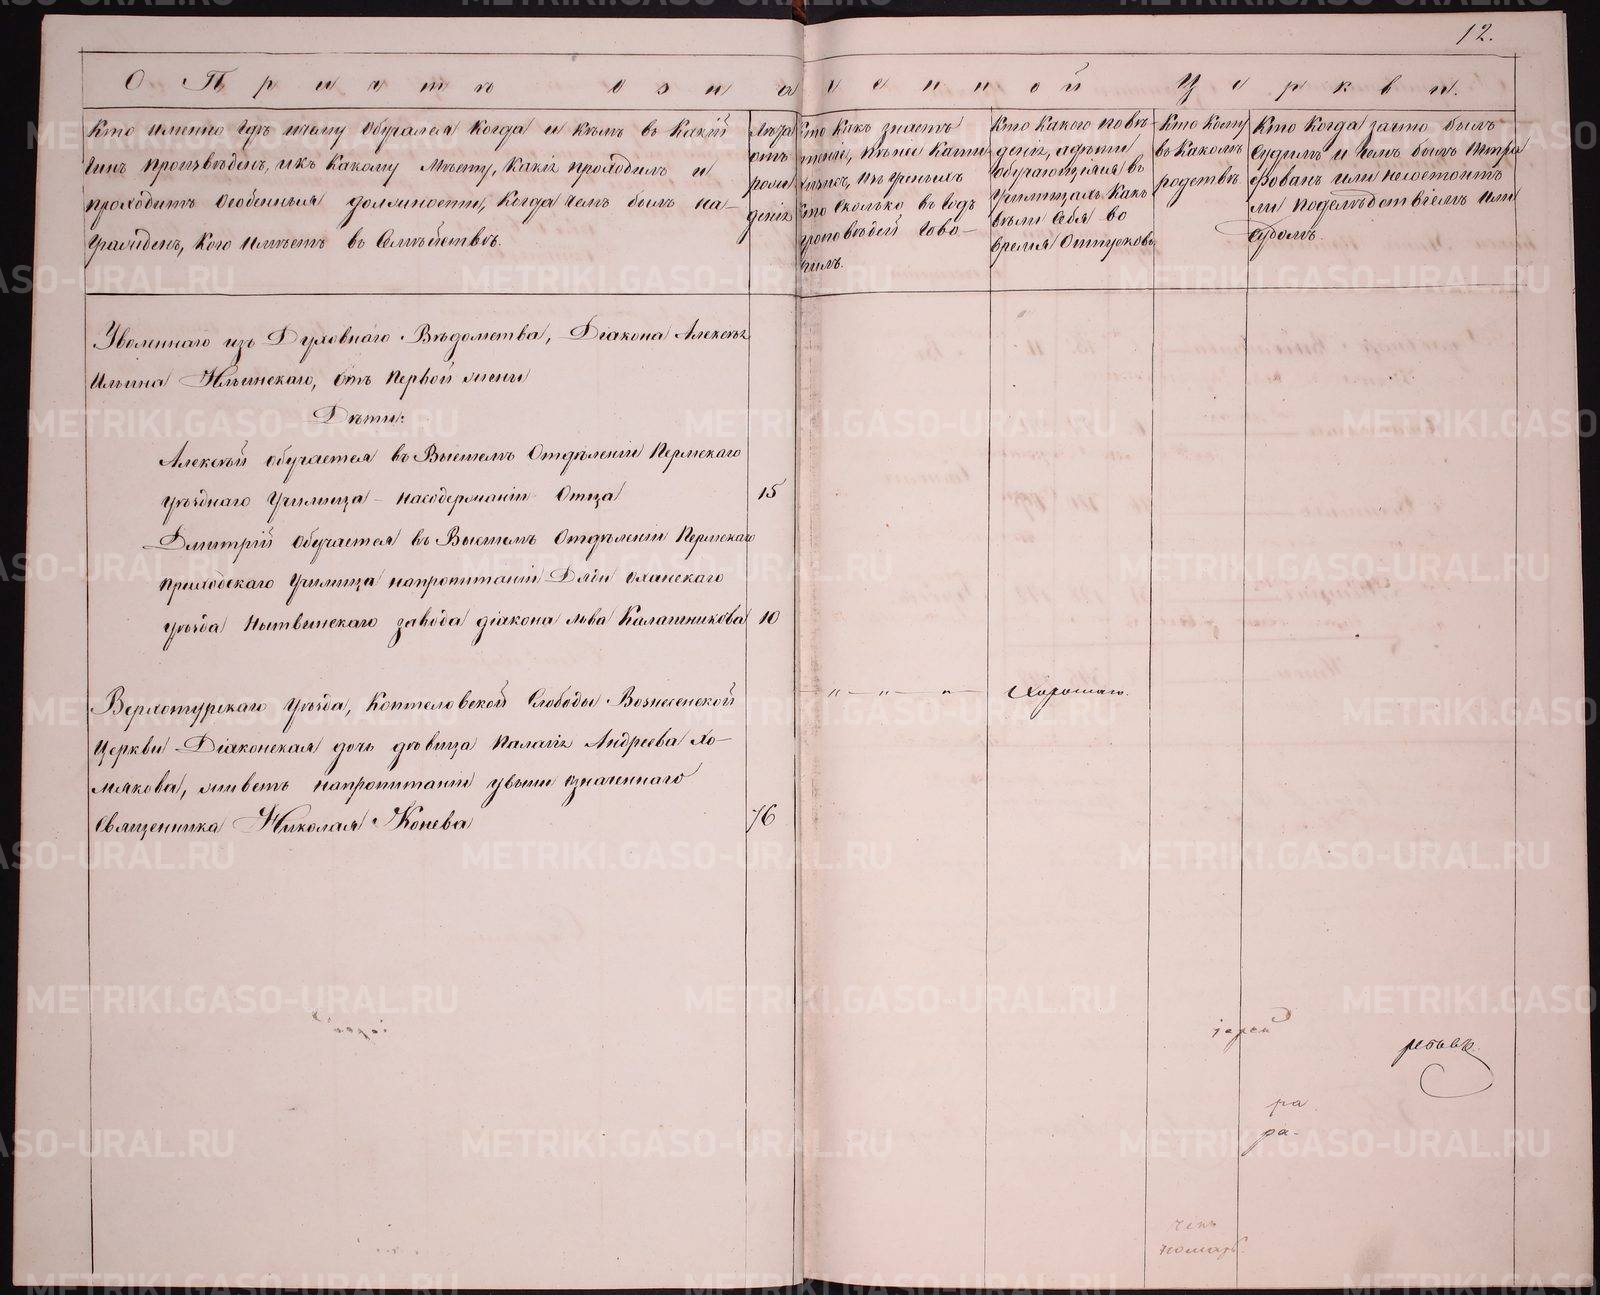 12.
О Причтѣ означенной Церкви.
Кто именно гдѣ и чему обучался когда и кѣмъ въ какiй
чинъ произвѣденъ, и къ какому мѣсту, какiя проходилъ и
проходитъ особенныя должности, когда чемъ былъ на-
гражденъ, кого имѣетъ въ семѣйствѣ.
Лѣта
отъ
рож
денiя
Кто какъ знаетъ
пѣнiе, кати-
хизисъ, изъ ученыхъ
кто сколько въ годъ
проповѣдей гово-
рилъ.
Кто какого повѣ-
денiя, а дѣти
обучающiяся въ
училищахъ какъ
вѣли себя во
время отпусковъ
Кто кому
въ какомъ
родствѣ
Кто когда за что былъ
судимъ и чемъ былъ штра
фованъ или не состоитъ
ли подслѣдствiемъ или
судомъ.
Уволеннаго изъ Духовнаго Вѣдомства, Дiакона Алексѣя
Ильина Ильинскаго, отъ первой жены
Дѣти:
Алексѣй обучается въ Высшемъ Отдѣленiи Пермскаго
уѣзднаго училища - на содержанiи Отца 15
Дмитрiй обучается въ Высшемъ Отдѣленiи Пермскаго
приходскаго училища на пропитанiи Дяди Оханскаго
уѣзда Нытвинскаго завода дiакона Льва Калашникова 10
Верхотурскаго уѣзда, Коптеловской Слободы Вознесенской
Церкви Дiаконская дочь дѣвица Палагiя Андреева Хо-
мякова, живетъ на пропитанiи у выше означеннаго
Священника Николая Конева 76
—„—„—„— Хорошаго.
iерей
ра
ра-